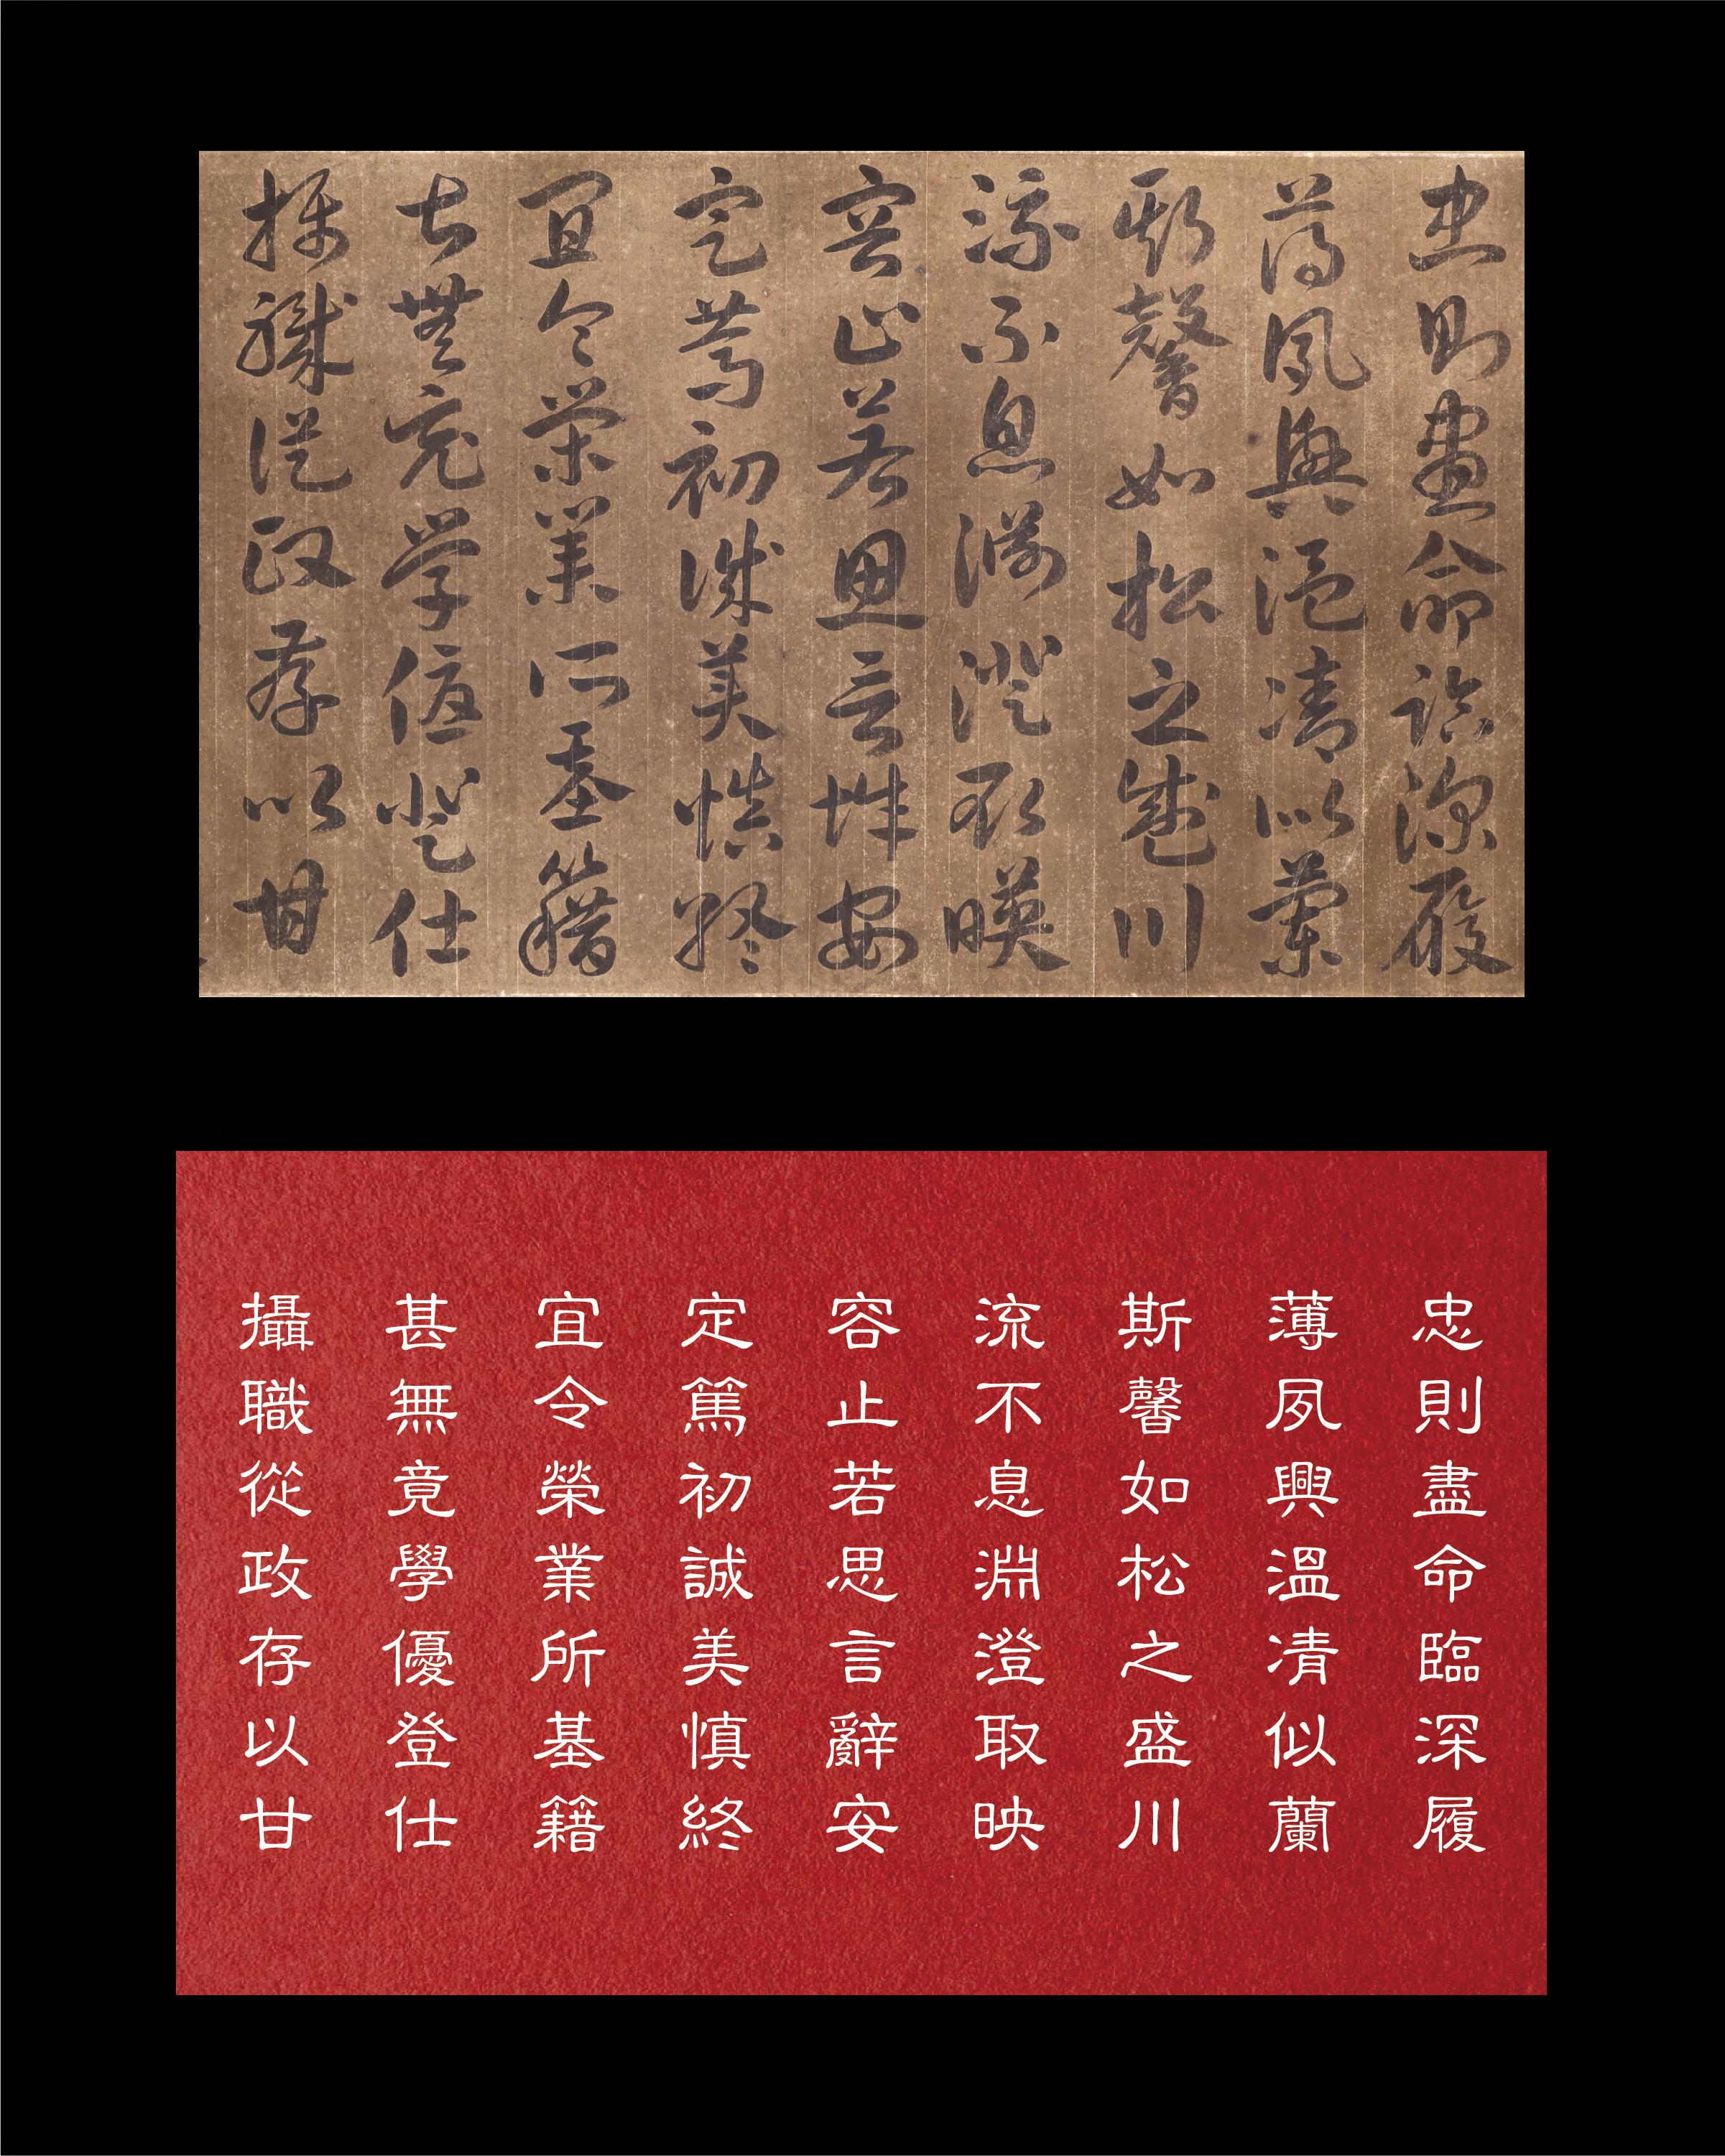 忠則盡命臨深履
薄夙興溫凊似蘭
斯馨如松之盛川
流不息淵澄取暎
容止若思言辭安
定篤初誠美慎終
宜令榮業所基籍
甚無竟學優登仕
攝職從政存以甘
忠則盡命臨深履
薄夙興溫凊似蘭
斯馨如松之盛川
流不息淵澄取映
容止若思言辭安
定篤初誠美慎終
宜令榮業所基籍
甚無竟學優登仕
攝職從政存以甘